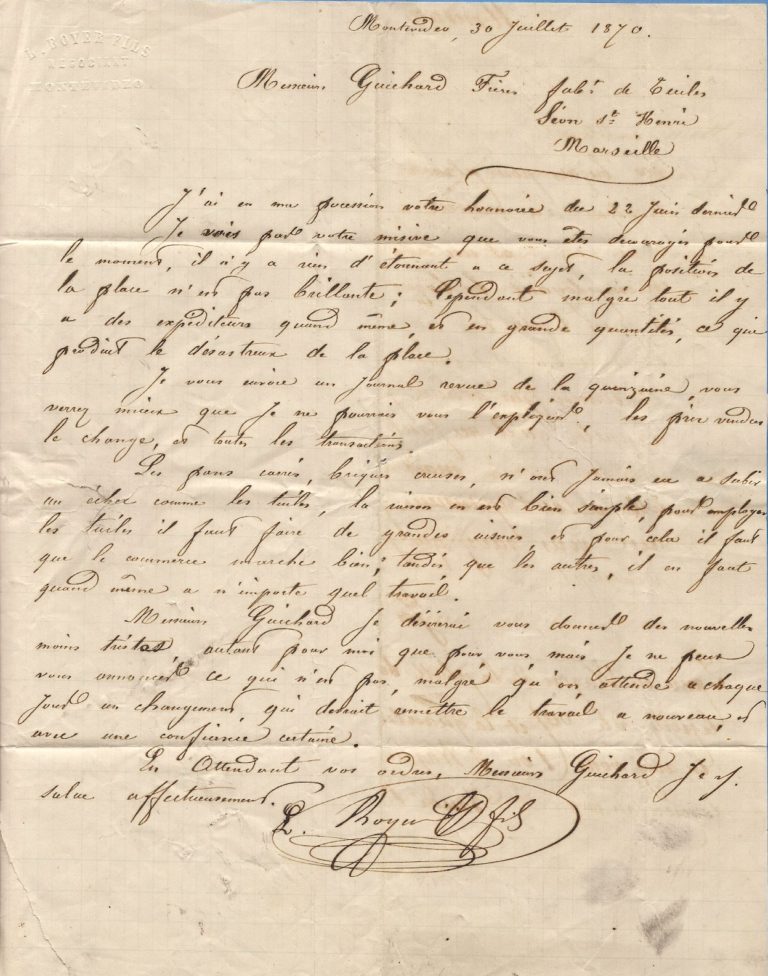 L. ROYER FILS
NEGOCIANT
MONTEVIDEO
Montevideo, 30 Juillet 1870.
Messieurs Guichard Frères fabts de Tuiles
Séon st Henri
Marseille
J'ai en ma pocession votre honnorée du 22 Juin dernier
Je vois par votre misive que vous êtes decouragés pour
le moment, il n'y a rien d'étonnant a ce sujet, la position de
la place n'est pas brillante; Cependant malgré tout il y
a des expediteurs quand même, et en grande quantités, ce qui
produit le désastreux de la place.
Je vous envoie un Journal revue de la quinzaine, vous
verrez mieux que Je ne pourrais vous l'expliquer, les prix vendus
le change, et toutes les transactions.
Les pans carrés, briques creuses, n'ont Jamais eu a subir
un échec comme les tuiles, la raison en est bien simple, pour employer
les tuiles il faut faire de grandes usines, et pour cela il faut
que le commerce marche bien; tandis que les autres, il en faut
quand même a n'importe quel travail.
Messieurs Guichard Je désirerai vous donner des nouvelles
moins tristes, autant pour moi que pour vous mais Je ne peux
vous annoncer ce qui n'est pas, malgré qu'on attende a chaque
Jour un changement qui devrait remettre le travail a nouveau, et
avec une confiance certaine.
En Attendant vos ordres, Messieurs Guichard Je v.
salue affectueusement.
L. Royer fils